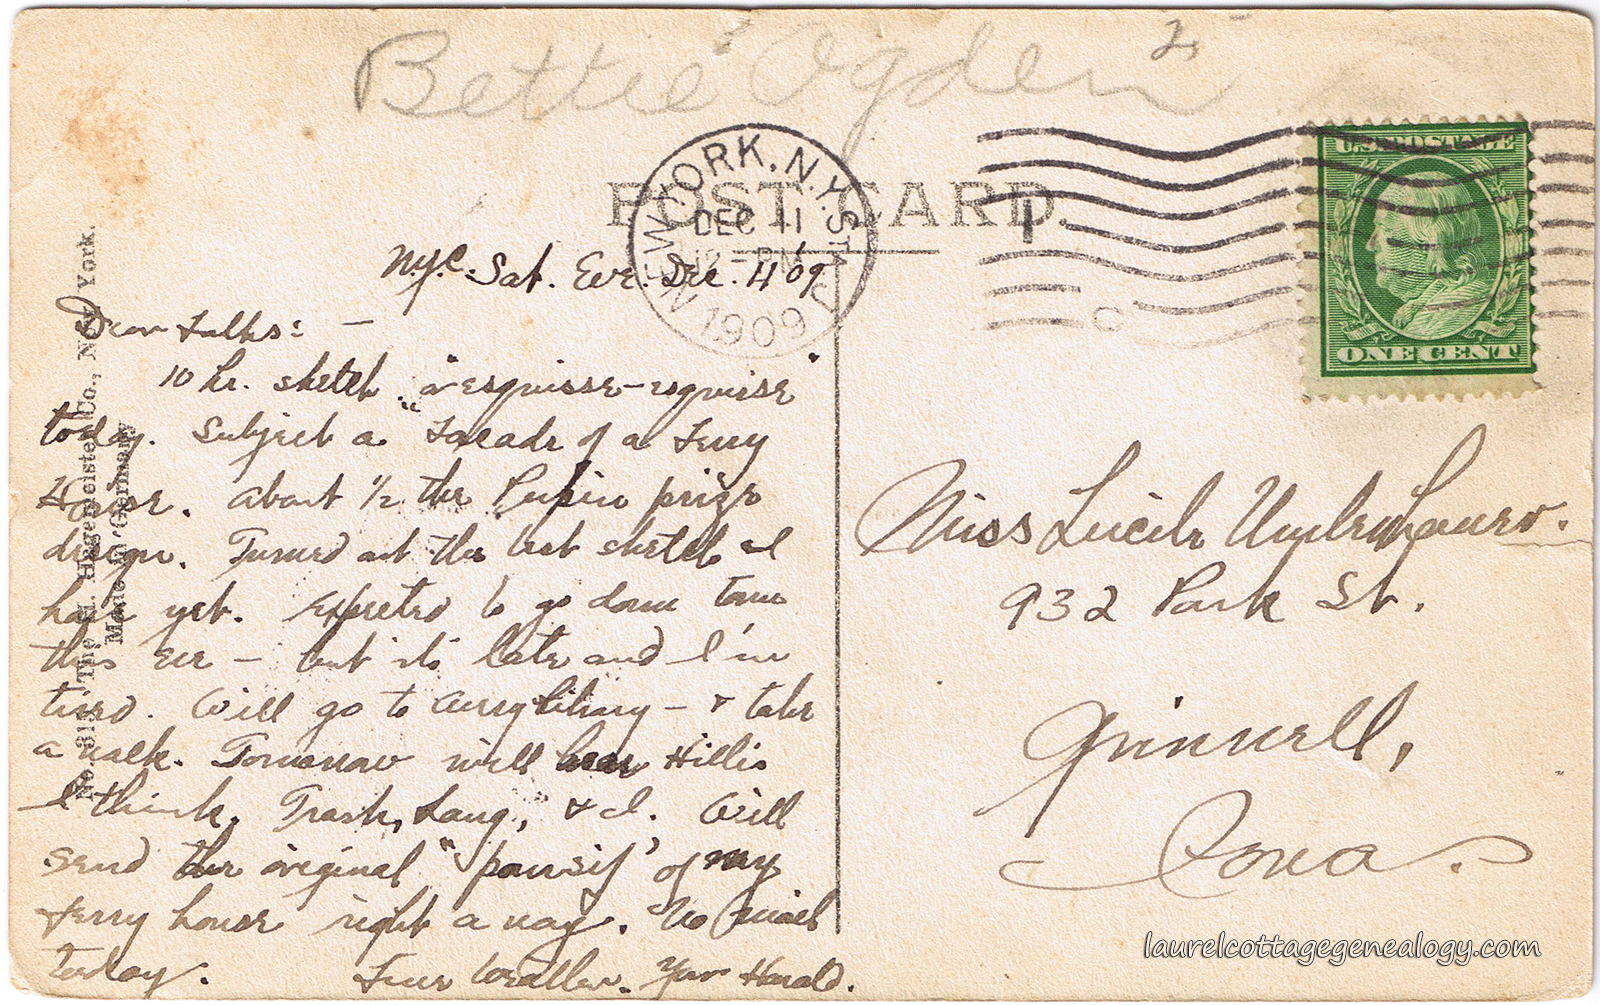 Bettie Ogden
2
POST CARD
NEW YORK, N.Y. STA.
DEC 11
12 - PM
1909
1
C
U.S. POSTAGE
ONE CENT
N.Y.C. Sat. Eve. Dec. 11 '09
Dear Folks: —
10 hr. sketch "esquisse-esquisse"
today. Subject a "Facade of a Ferry
House. About 1/2 the prize
design. Turned out the best sketch I
have yet. Expected to go down town
this eve — but it's late and I'm
tired. Will go to Avery library — & take
a walk. Tomorrow will hear Hillis
I think, Trask, Lang, & I. Will
send the original " of my
ferry house right away. No mail
today. Fine weather. Your Harald.
Miss Lucile
932 Park St.
Grinnell,
Iowa.
No. The H. Hagemeister Co., New York.
Made in Germany
laurelcottagegenealogy.com